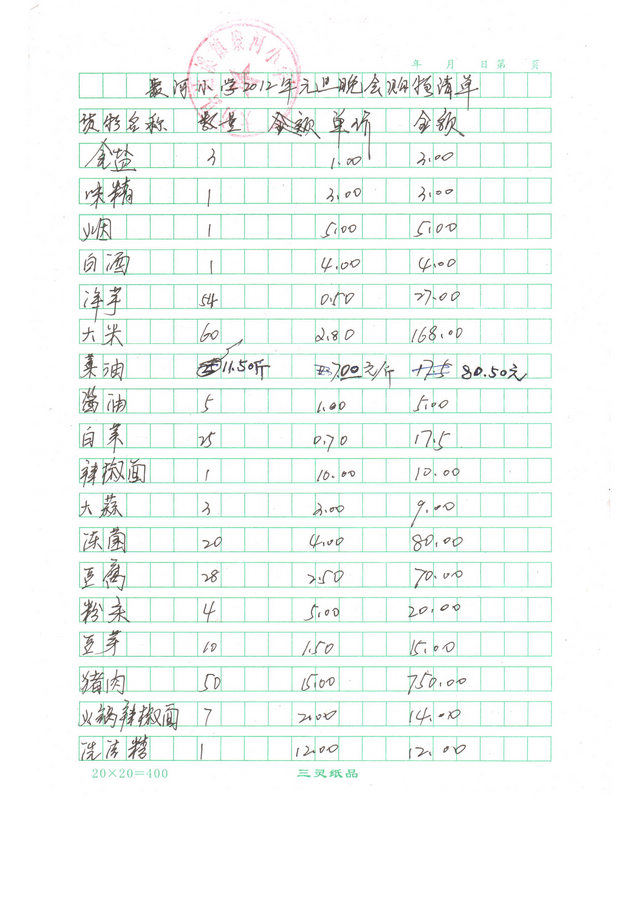 年 月 日第 页
聚河小学2012年元旦晚会购物清单
货物名称 数量 金额 单价 金额
食盐 3 1.00 3.00
味精 1 3.00 3.00
烟 1 5.00 5.00
白酒 1 4.00 4.00
洋芋 54 0.50 27.00
大米 60 2.80 168.00
菜油 11.50斤 7.00元/斤 17.5 80.50元
酱油 5 1.00 5.00
白菜 25 0.70 17.5
辣椒面 1 10.00 10.00
大蒜 3 3.00 9.00
冻菌 20 4.00 80.00
豆腐 28 2.50 70.00
粉条 4 5.00 20.00
豆芽 10 1.50 15.00
猪肉 50 15.00 750.00
火锅辣椒面 7 2.00 14.00
洗洁精 1 12.00 12.00
20×20=400 三灵纸品